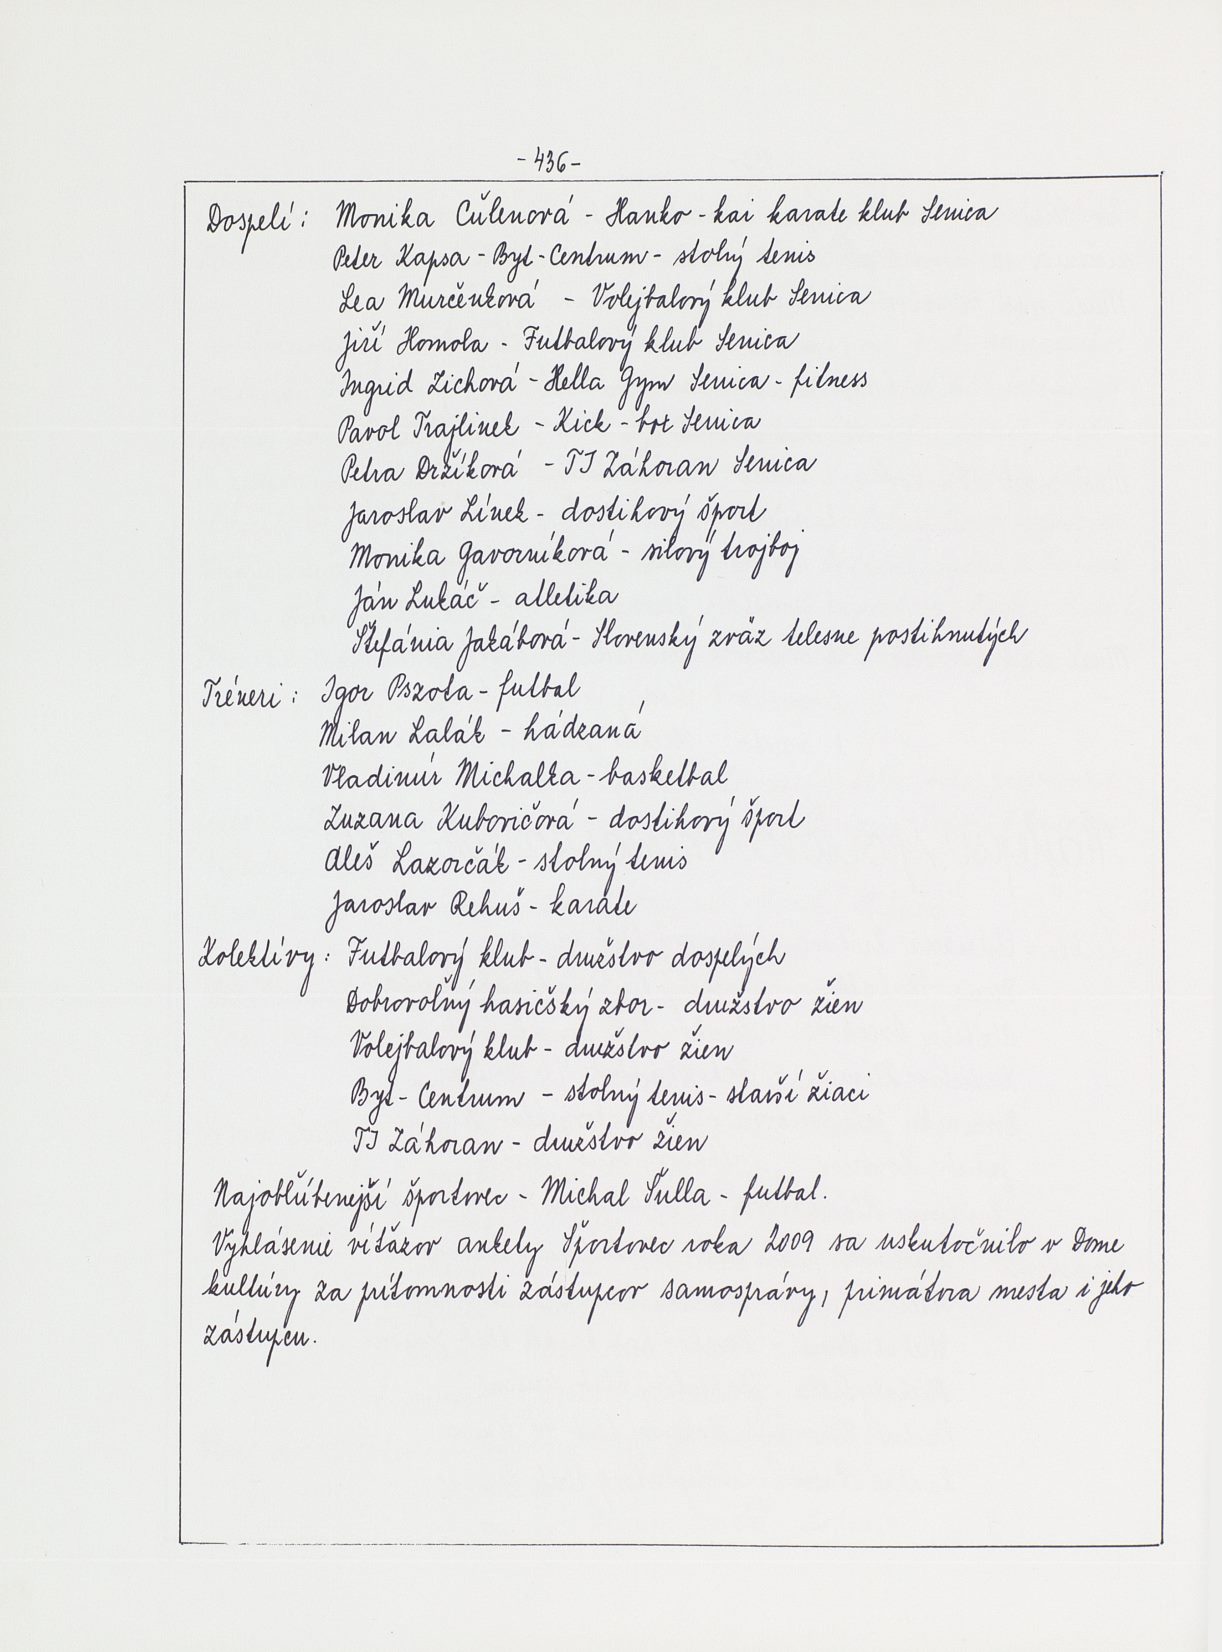 - 436 -
Dospelí: Monika Čulenová - Hanko - kai karate klub Senica
Peter Kapsa - Byt - Centrum - stolný tenis
Lea Murčeková - Volejbalový klub Senica
Jiří Homola - Futbalový klub Senica
Ingrid Zichová - Hella Gym Senica - fitness
Pavol Trajlinek - Kick - box Senica
Petra Držíková - TJ Záhoran Senica
Jaroslav Línek - dostihový šport
Monika Gavorníková - silový trojboj
Ján Lukáč - atletika
Štefánia Jakábová - Slovenský zväz telesne postihnutých
Tréneri: Igor Pszota - futbal
Milan Lalák - hádzaná
Vladimír Michalka - basketbal
Zuzana Kubovičová - dostihový šport
Aleš Lazorčák - stolný tenis
Jaroslav Rehuš - karate
Kolektívy: Futbalový klub - družstvo dospelých
Dobrovoľný hasičský zbor - družstvo žien
Volejbalový klub - družstvo žien
Byt - Centrum - stolný tenis - starší žiaci
TJ Záhoran - družstvo žien
Najobľúbenejší športovec - Michal Šulla - futbal.
Vyhlásenie víťazov ankety Športovec roka 2009 sa uskutočnilo v Dome
kultúry za prítomnosti zástupcov samosprávy, primátora mesta i jeho
zástupcu.